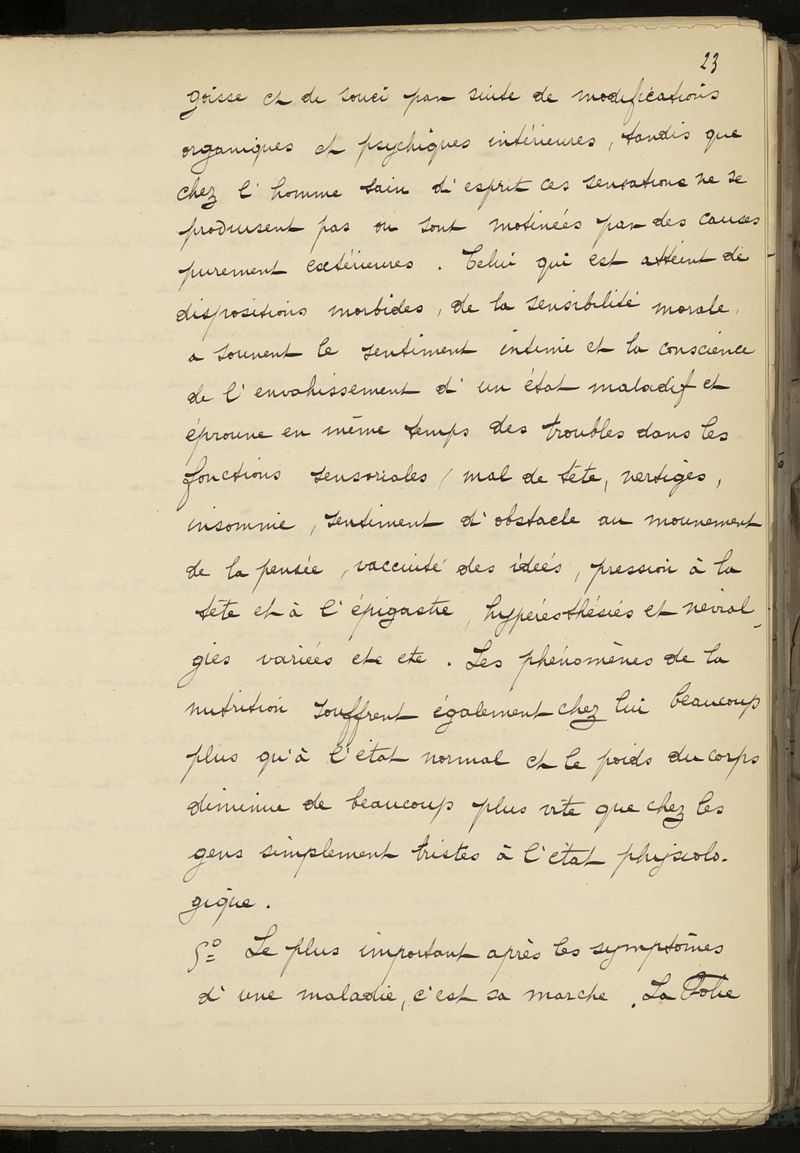 23
goisse et de souci par suite de modifications
organiques et psychiques intérieures, tandis que
chez l'homme sain d'esprit ces sensations ne se
produisent pas ou sont motivées par des causes
purement extérieures. Celui qui est atteint de
dispositions morbides, de la sensibilité morale,
a souvent le sentiment intime et la conscience
de l'envahissement d'un état maladif et
éprouve en même temps des troubles dans les
fonctions sensoriales (mal de tête, vertiges,
insomnie, sentiment d'obstacle au mouvement
de la pensée, vaccuité des idées, pression à la
tête et à l'épigastre, hyperesthésies et névral-
gies variées etc etc. Les phénomènes de la
nutrition souffrent également chez lui beaucoup
plus qu'à l'état normal et le poids du corps
diminue de beaucoup plus vite que chez les
gens simplement tristes à l'état physiolo-
gique.
5º Le plus important après les symptômes
d'une maladie, c'est sa marche. La Folie